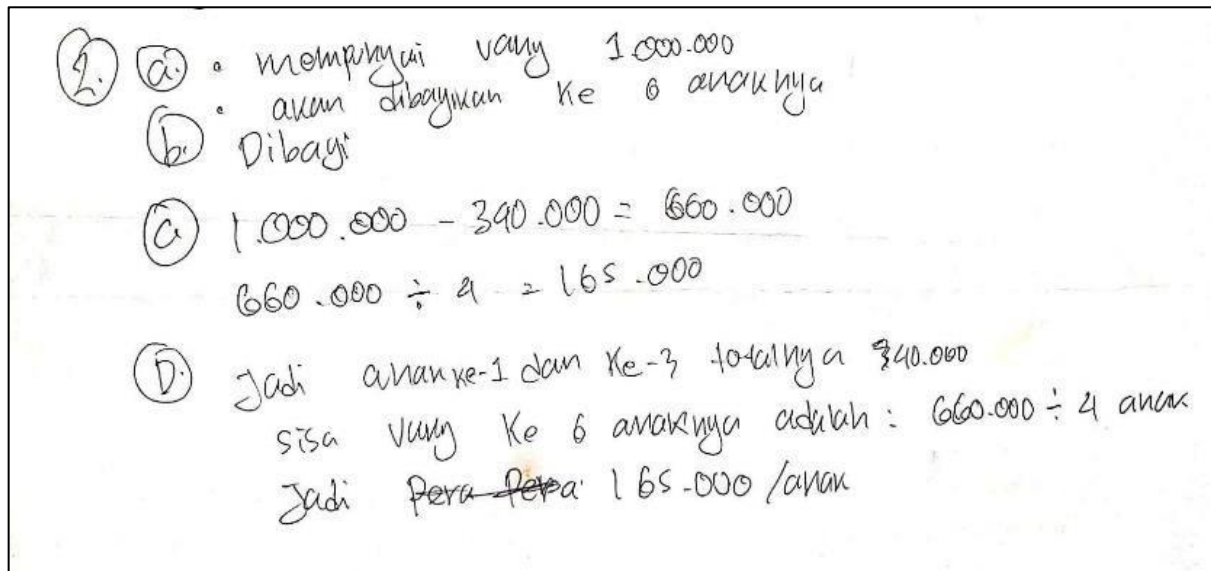 2. a. • mempunyai uang 1.000.000
• akan dibagikan ke 6 anaknya
b. Dibagi
C 1.000.000 - 340.000 = 660.000
660.000 ÷ 4 = 165.000
D. Jadi anak ke-1 dan ke-3 totalnya 340.000
sisa uang ke 6 anaknya adalah : 660.000 ÷ 4 anak
Jadi 165.000 /anak